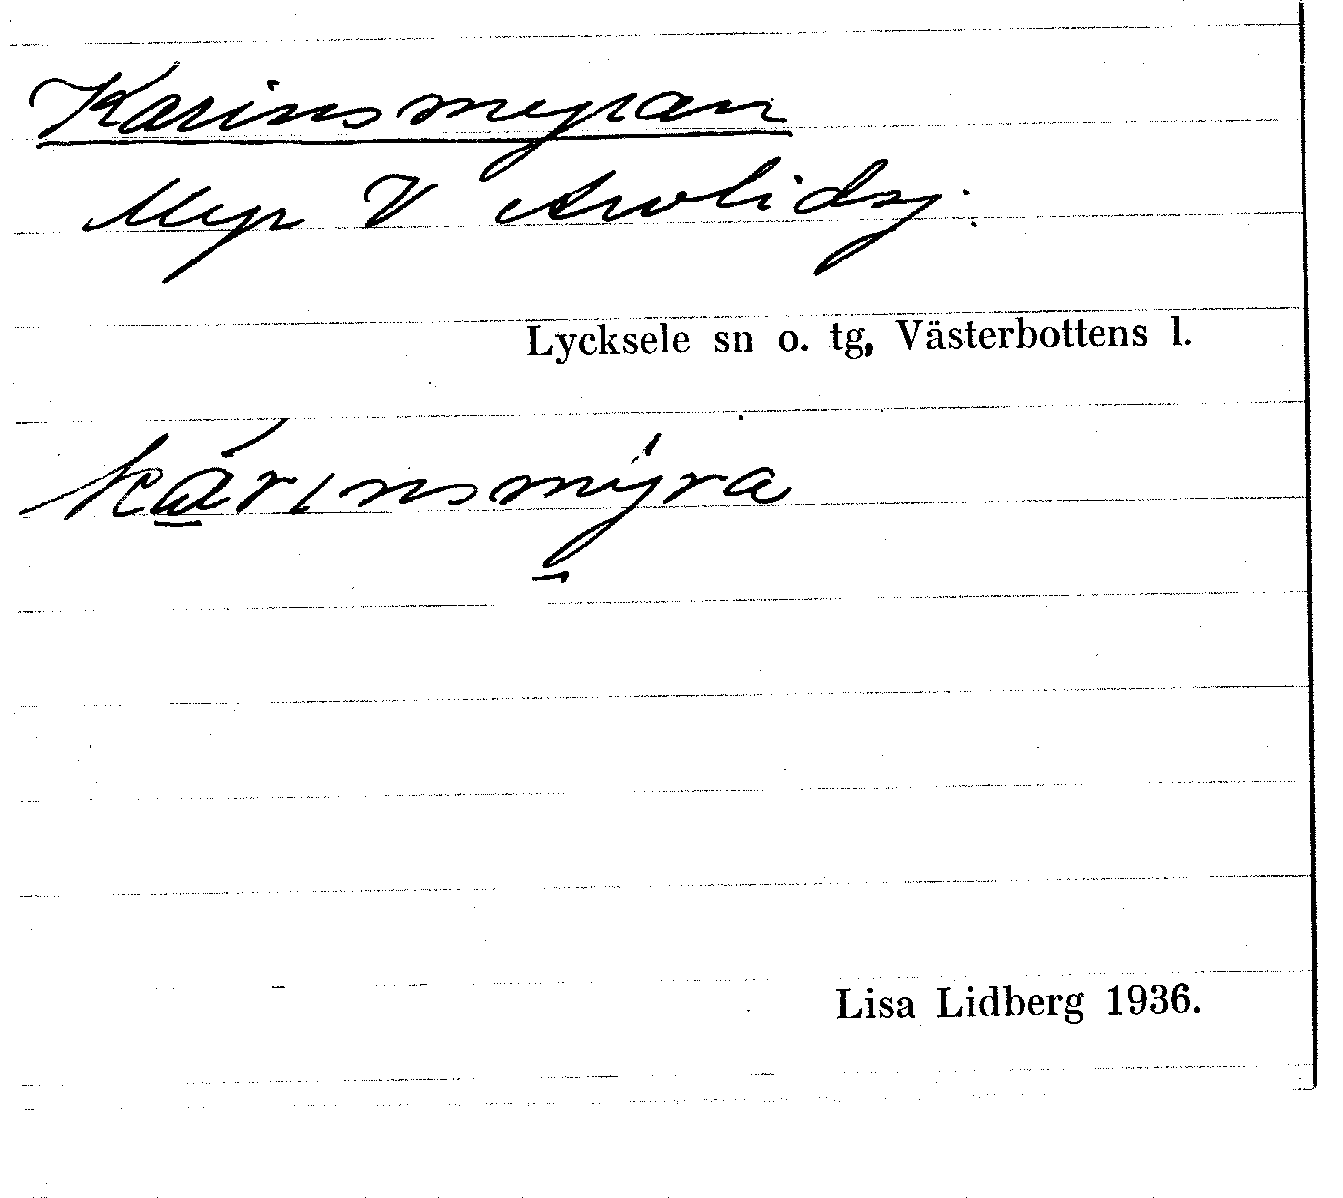 Karinsmyran
Myr V Arvlidsj.
Lycksele sn o. tg, Västerbottens l.
kárinsmýra
Lisa Lidberg 1936.